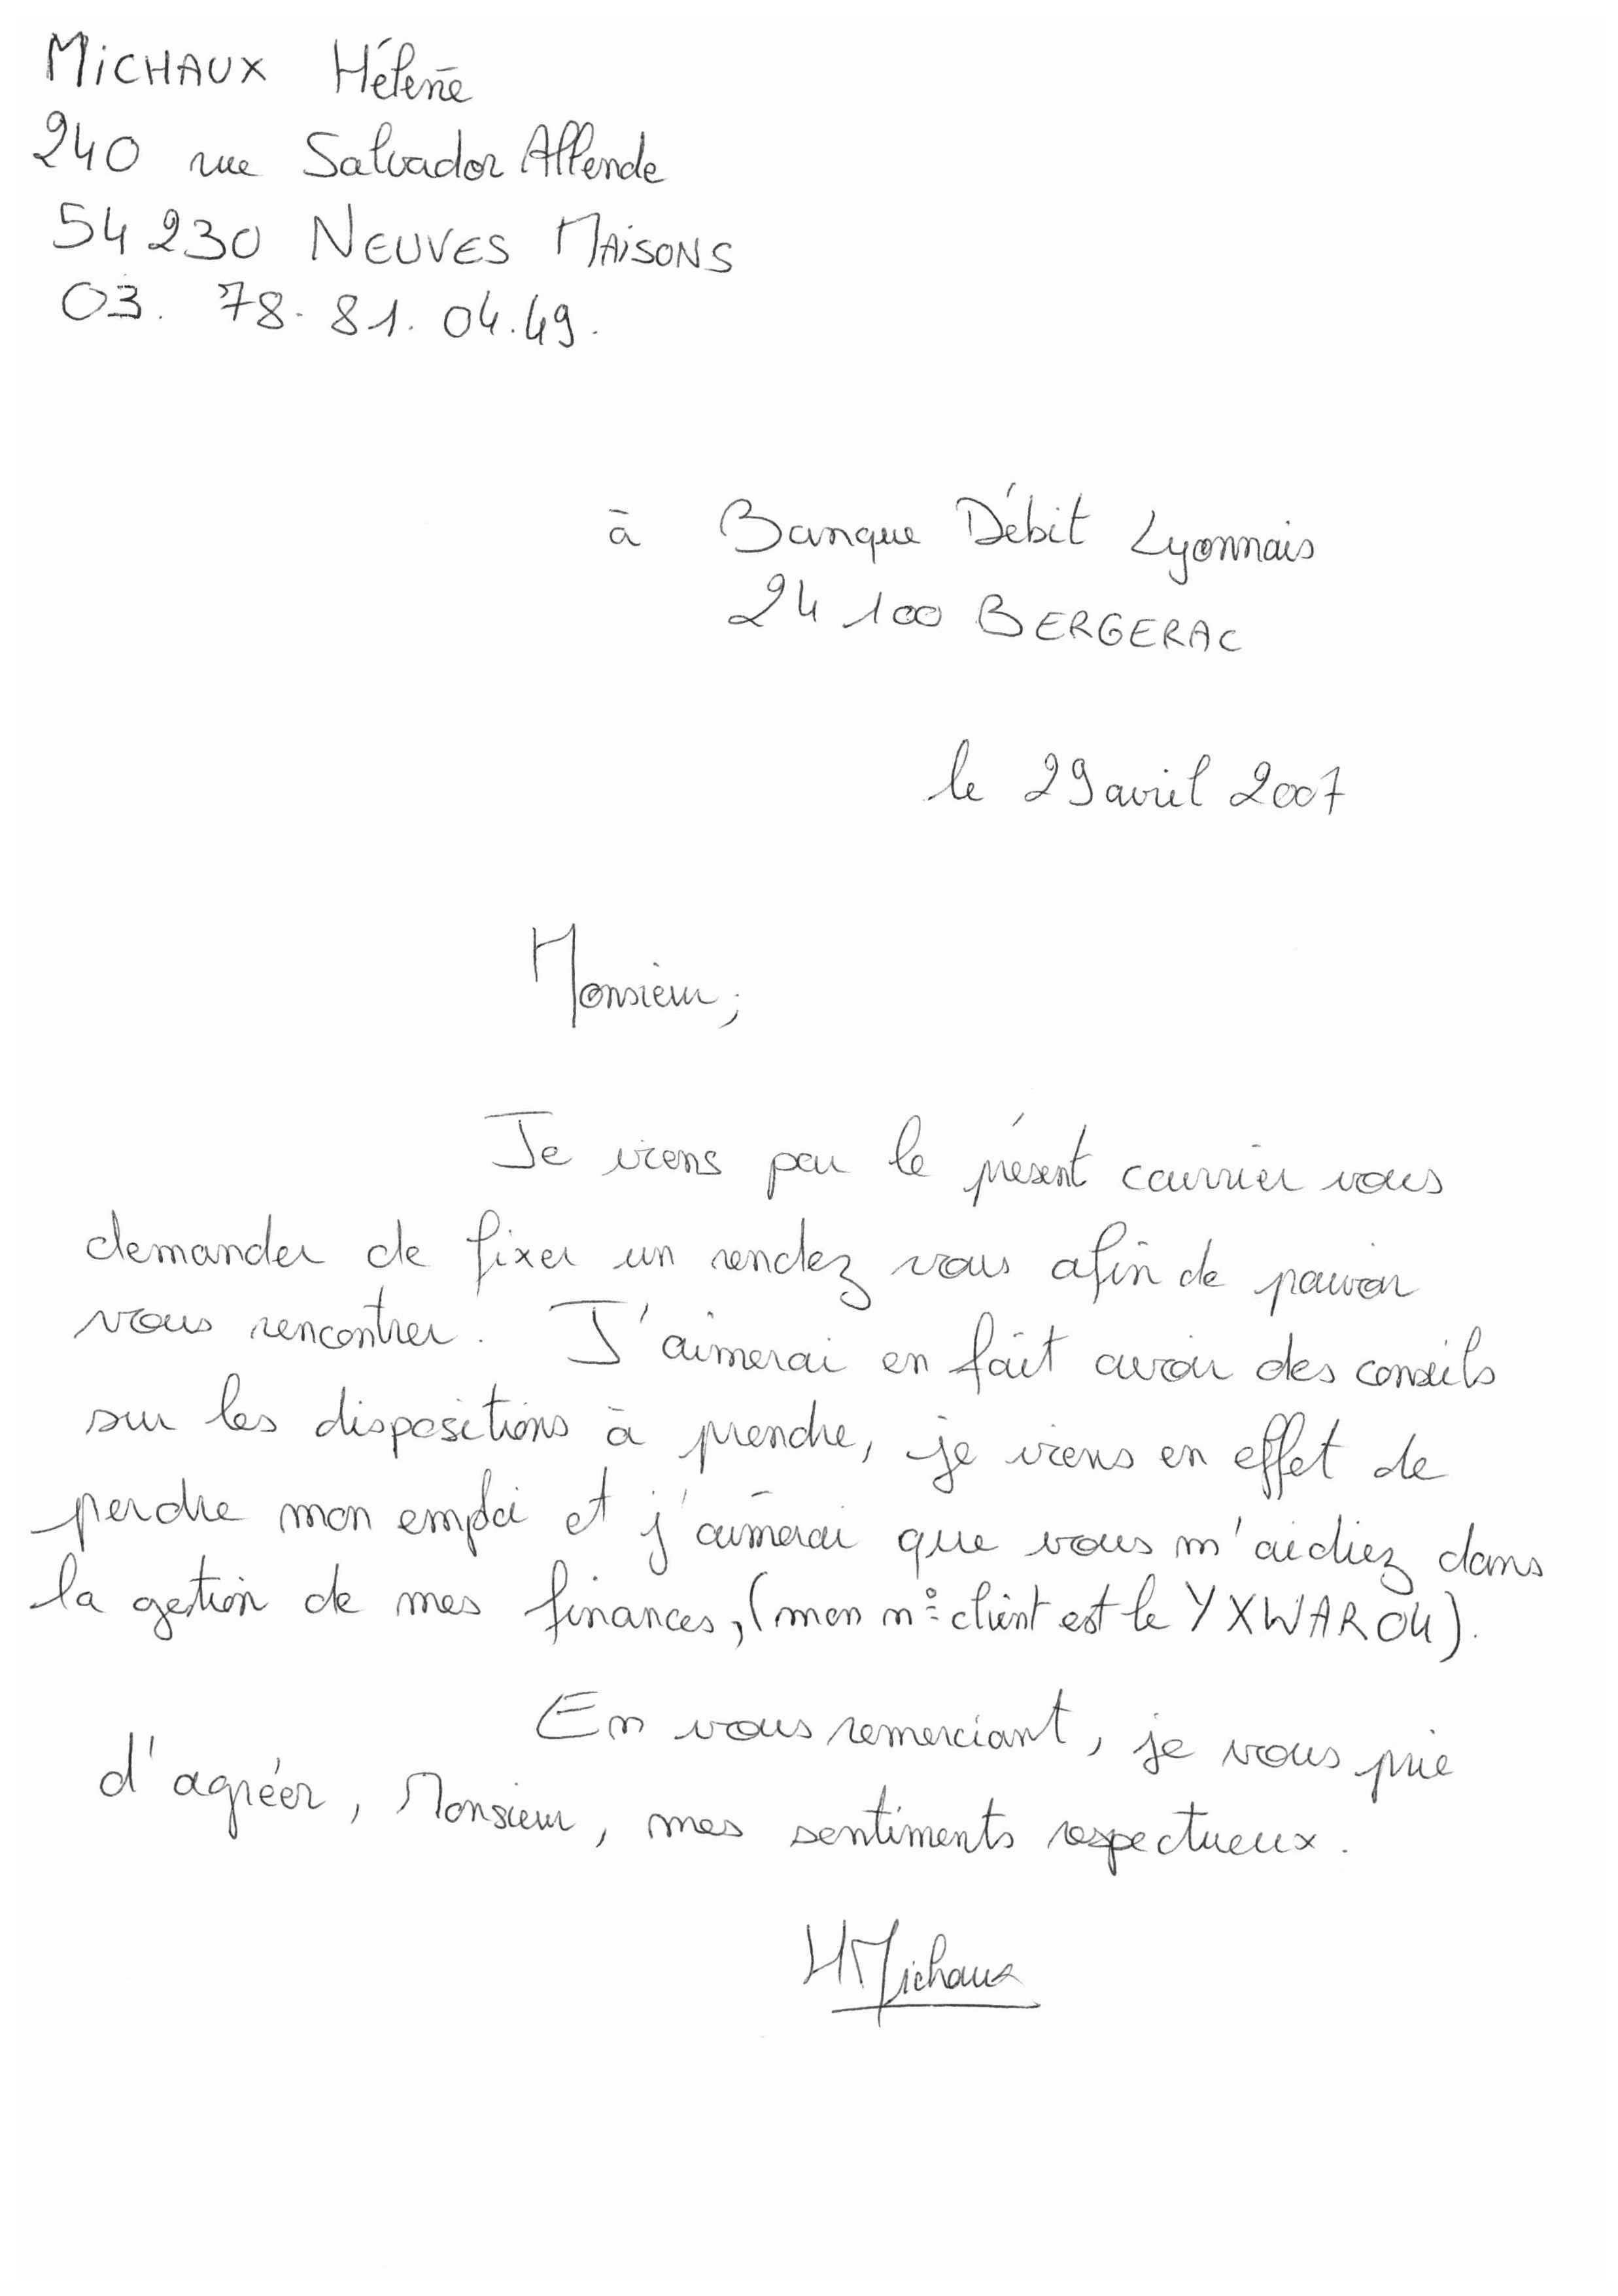 MICHAUX Hélène
240 rue Salvador Allende
54 230 NEUVES MAISONS
03. 78. 81. 04. 49.
à Banque Débit Lyonnais
24 100 BERGERAC
le 29 avril 2007
Monsieur;
Je viens par le présent courrier vous
demander de fixer un rendez vous afin de pouvoir
vous rencontrer. J'aimerai en fait avoir des conseils
sur les dispositions à prendre, je viens en effet de
perdre mon emploi et j'aimerai que vous m'aidiez dans
la gestion de mes finances, (mon n° client est le YXWAR04).
En vous remerciant, je vous prie
d'agréer, Monsieur, mes sentiments respectueux.
HMichaux